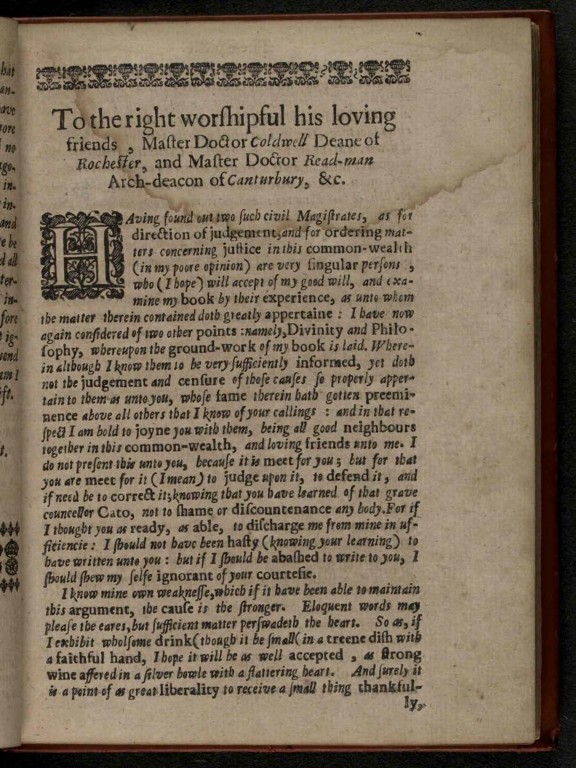 To the right worſhipful his loving
friends , Maſter Doctor Coldwell Deane of
Rocheſter, and Maſter Doctor Read-man
Arch-deacon of Canturbury, &c.
HAving found out two ſuch civil Magiſtrates, as for
direction of judgement,and for ordering mat-
ters concerning juſtice in this common-wealth
(in my poore opinion) are very ſingular perſons ,
who (I hope) will accept of my good will, and exa-
mine my book by their experience, as unto whom
the matter therein contained doth greatly appertaine : I have now
again conſidered of two other points :namely,Divinity and Philo-
ſophy, whereupon the ground-work of my book is laid. Where-
in although I know them to be very ſufficiently informed, yet doth
not the judgement and cenſure of thoſe cauſes ſo properly apper-
tain to them as unto you, whoſe fame therein hath gotten preemi-
nence above all others that I know of your callings : and in that re-
ſpect I am bold to joyne you with them, being all good neighbours
together in this common-wealth, and loving friends unto me. I
do not preſent this unto you, becauſe it is meet for you ; but for that
you are meet for it (I mean) to judge upon it, to defend it, and
if need be to correct it;knowing that you have learned of that grave
councellor Cato, not to ſhame or diſcountenance any body.For if
I thought you as ready, as able, to diſcharge me from mine in uf-
ficiencie : I ſhould not have been haſty (knowing your learning) to
have written unto you : but if I ſhould be abaſhed to write to you, I
ſhould ſhew my ſelfe ignorant of your courteſie.
I know mine own weakneſſe,which if it have been able to maintain
this argument, the cauſe is the ſtronger. Eloquent words may
pleaſe the eares,but ſufficient matter perſwadeth the heart. So as, if
I exhibit wholſome drink(though it be ſmall( in a treene diſh with
a faithful hand, I hope it will be as well accepted , as ſtrong
wine affered in a ſilver bowle with a flattering heart. And ſurely it
is a point of as great liberality to receive a ſmall thing thankful-
ly,